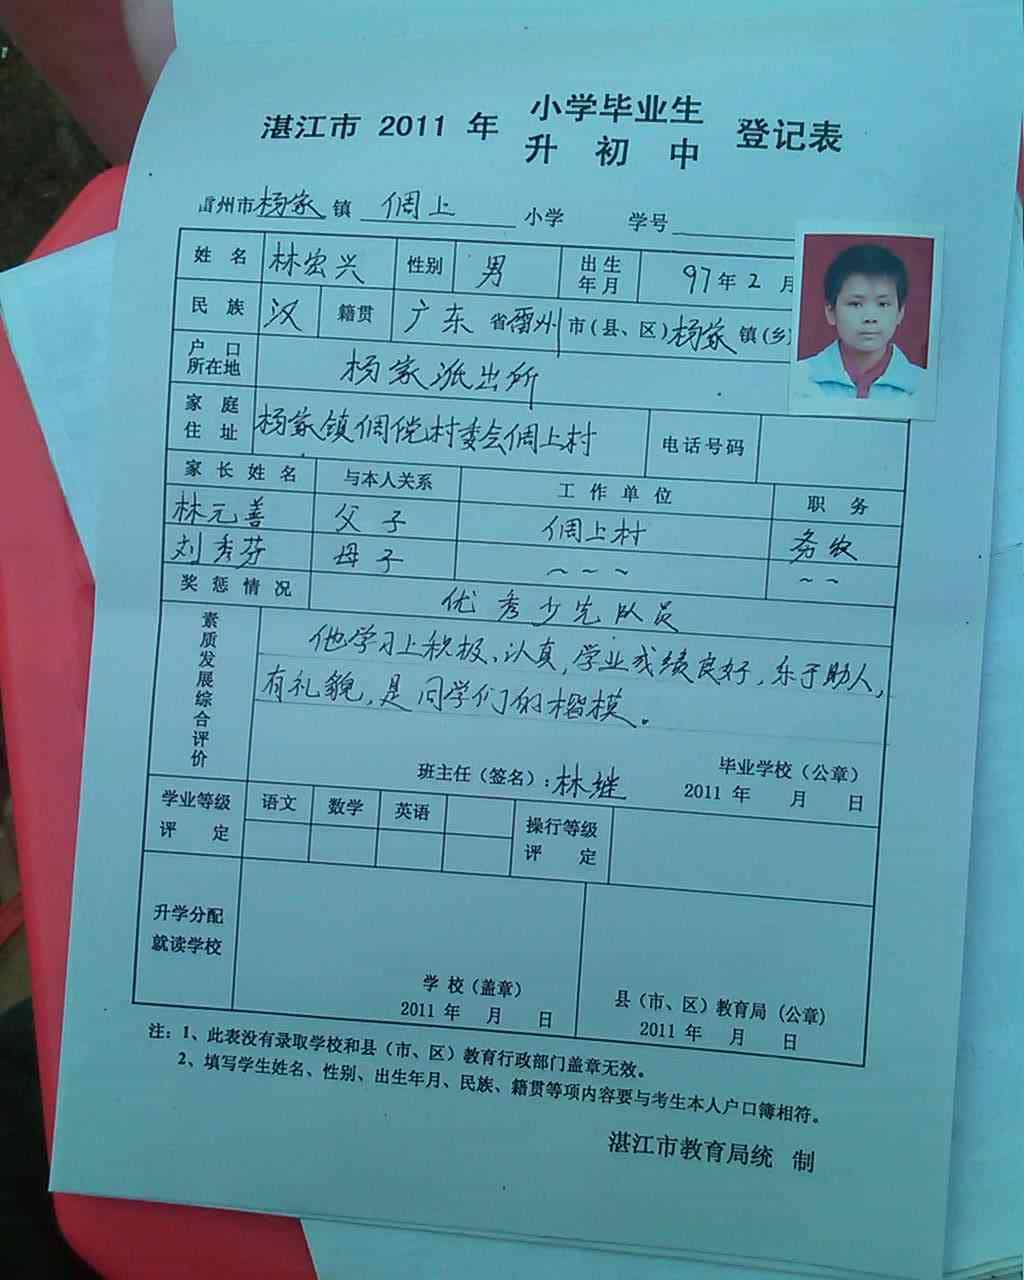 湛江市 2011 年 小学毕业生 登记表
升 初 中
雷州市杨家镇 倜上 小学 学号
姓名 林宏兴 性别 男 出生年月 97年2月
民族 汉 籍贯 广东省雷州市(县、区)杨家镇(乡)
户口所在地 杨家派出所
家庭住址 杨家镇倜傥村委会倜上村 电话号码
家长姓名 与本人关系 工作单位 职务
林元善 父子 倜上村 务农
刘秀芬 母子 ~ ~ ~ ~ ~
奖惩情况 优秀少先队员
素质发展综合评价
他学习上积极、认真,学业成绩良好,乐于助人,
有礼貌,是同学们的楷模。
毕业学校(公章)
班主任(签名):林继 2011 年 月 日
学业等级评定 语文 数学 英语 操行等级评定
升学分配
就读学校
学校(盖章)
2011 年 月 日
县(市、区)教育局(公章)
2011 年 月 日
注:1、此表没有录取学校和县(市、区)教育行政部门盖章无效。
2、填写学生姓名、性别、出生年月、民族、籍贯等项内容要与考生本人户口簿相符。
湛江市教育局统 制